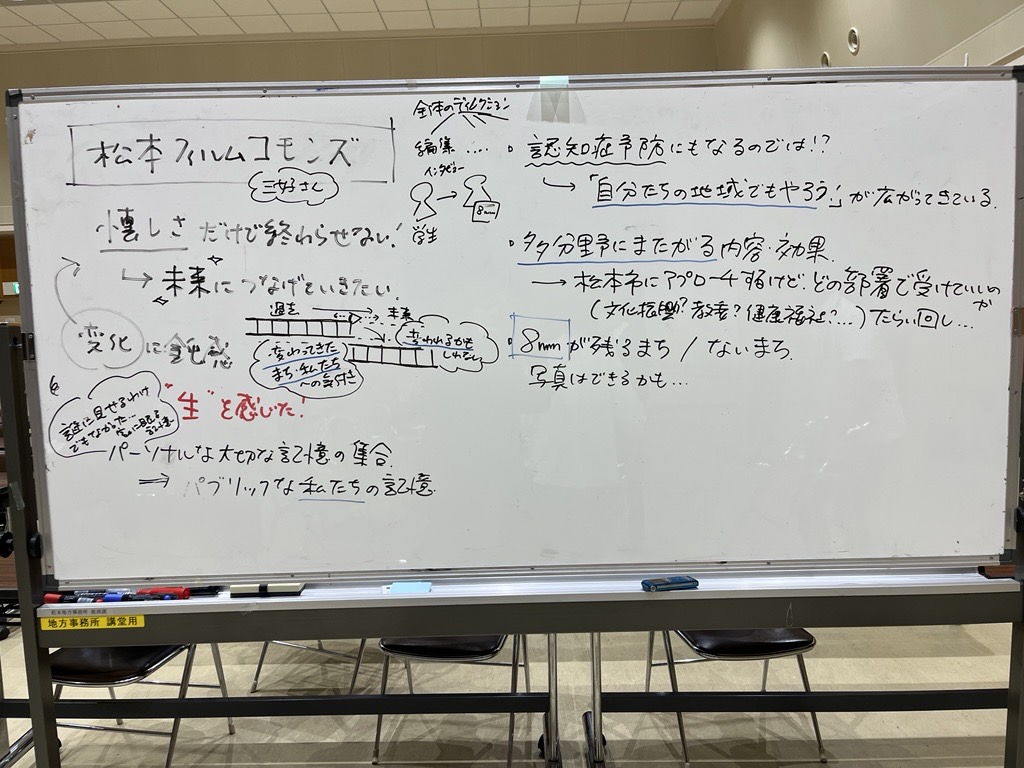 松本フィルムコモンズ
三好さん
懐しさだけで終わらせない!
↳ 未来につなげていきたい。
変化に鈍感
過去 未来
変わってきた
まち・私たち
への気付き
変われるかも
しれない
誰に見せるわけ
でもなかった…
家に眠る
記憶
"生"を感じた!
パーソナルな大切な記憶の集合
⇒ パブリックな私たちの記憶
全体のディレクション
編集 ‥‥
インタビュー
学生
8mm
・認知症予防にもなるのでは!?
↳「自分たちの地域でもやろう!」が広がってきている。
・多分野にまたがる内容・効果
→ 松本市にアプローチするけど、どの部署で受けていいのか
(文化振興?教育?健康福祉?…)たらい回し…
・8mmが残るまち/ないまち。
写真はできるかも…
地方事務所 講堂用